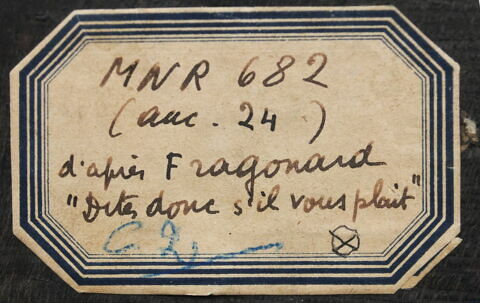 MNR 682
(anc. 24)
d'après Fragonard
"Dites donc s'il vous plait"